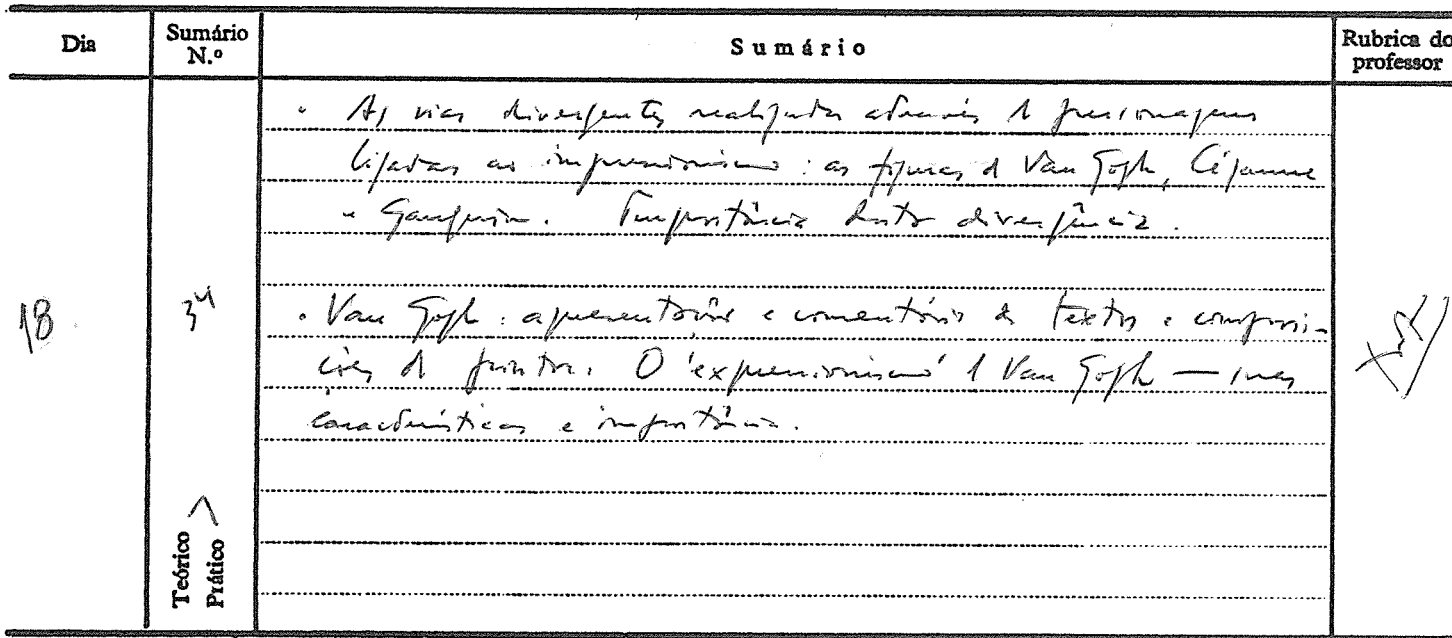 Dia
Sumário N.º
Sumário
Rubrica do professor
18
34
• As vias divergentes realizadas através d personagens
ligadas ao impressionismo: as figuras d Van Gogh, Cézanne
e Gauguin. Importância desta divergência.
• Van Gogh: apresentação e comentário de textos e composi-
ções do pintor. O 'expressionismo' d Van Gogh — suas
características e importância.
Teórico
Prático